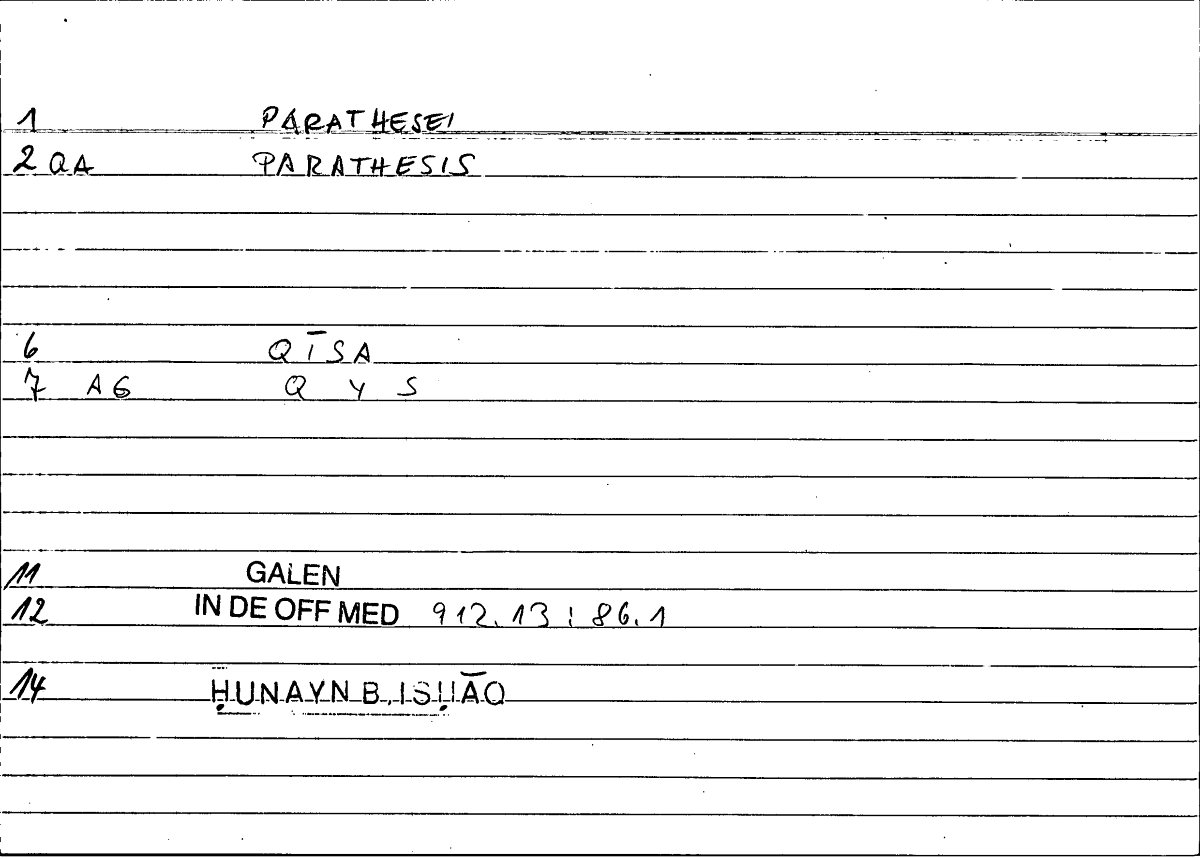 1 PARATHESEI
2 QA PARATHESIS
6 QĪSA
7 AG Q Y S
11 GALEN
12 IN DE OFF MED 912.13 ; 86.1
14 ḤUNAYN B. ISḤĀQ